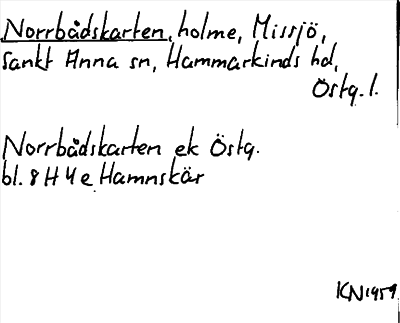 Norrbådskarten, holme, Missjö,
Sankt Anna sn, Hammarkinds hd,
Östg. l.
Norrbådskarten ek Östg.
bl. 8 H 4 e Hamnskär
KN 1959